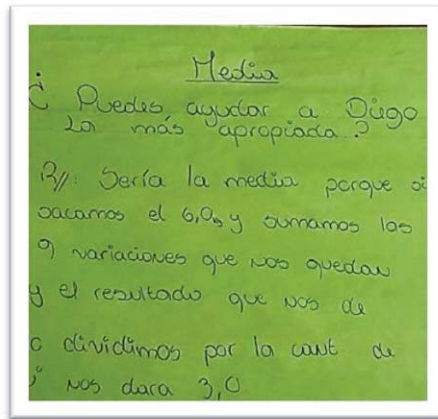 Media
¿ Puedes ayudar a Diego
La más apropiada?
R//: Sería la media porque si
sacamos el 6,0, y sumamos las
9 variaciones que nos quedan
y el resultado que nos de
dividimos por la cant de
nos dara 3,0